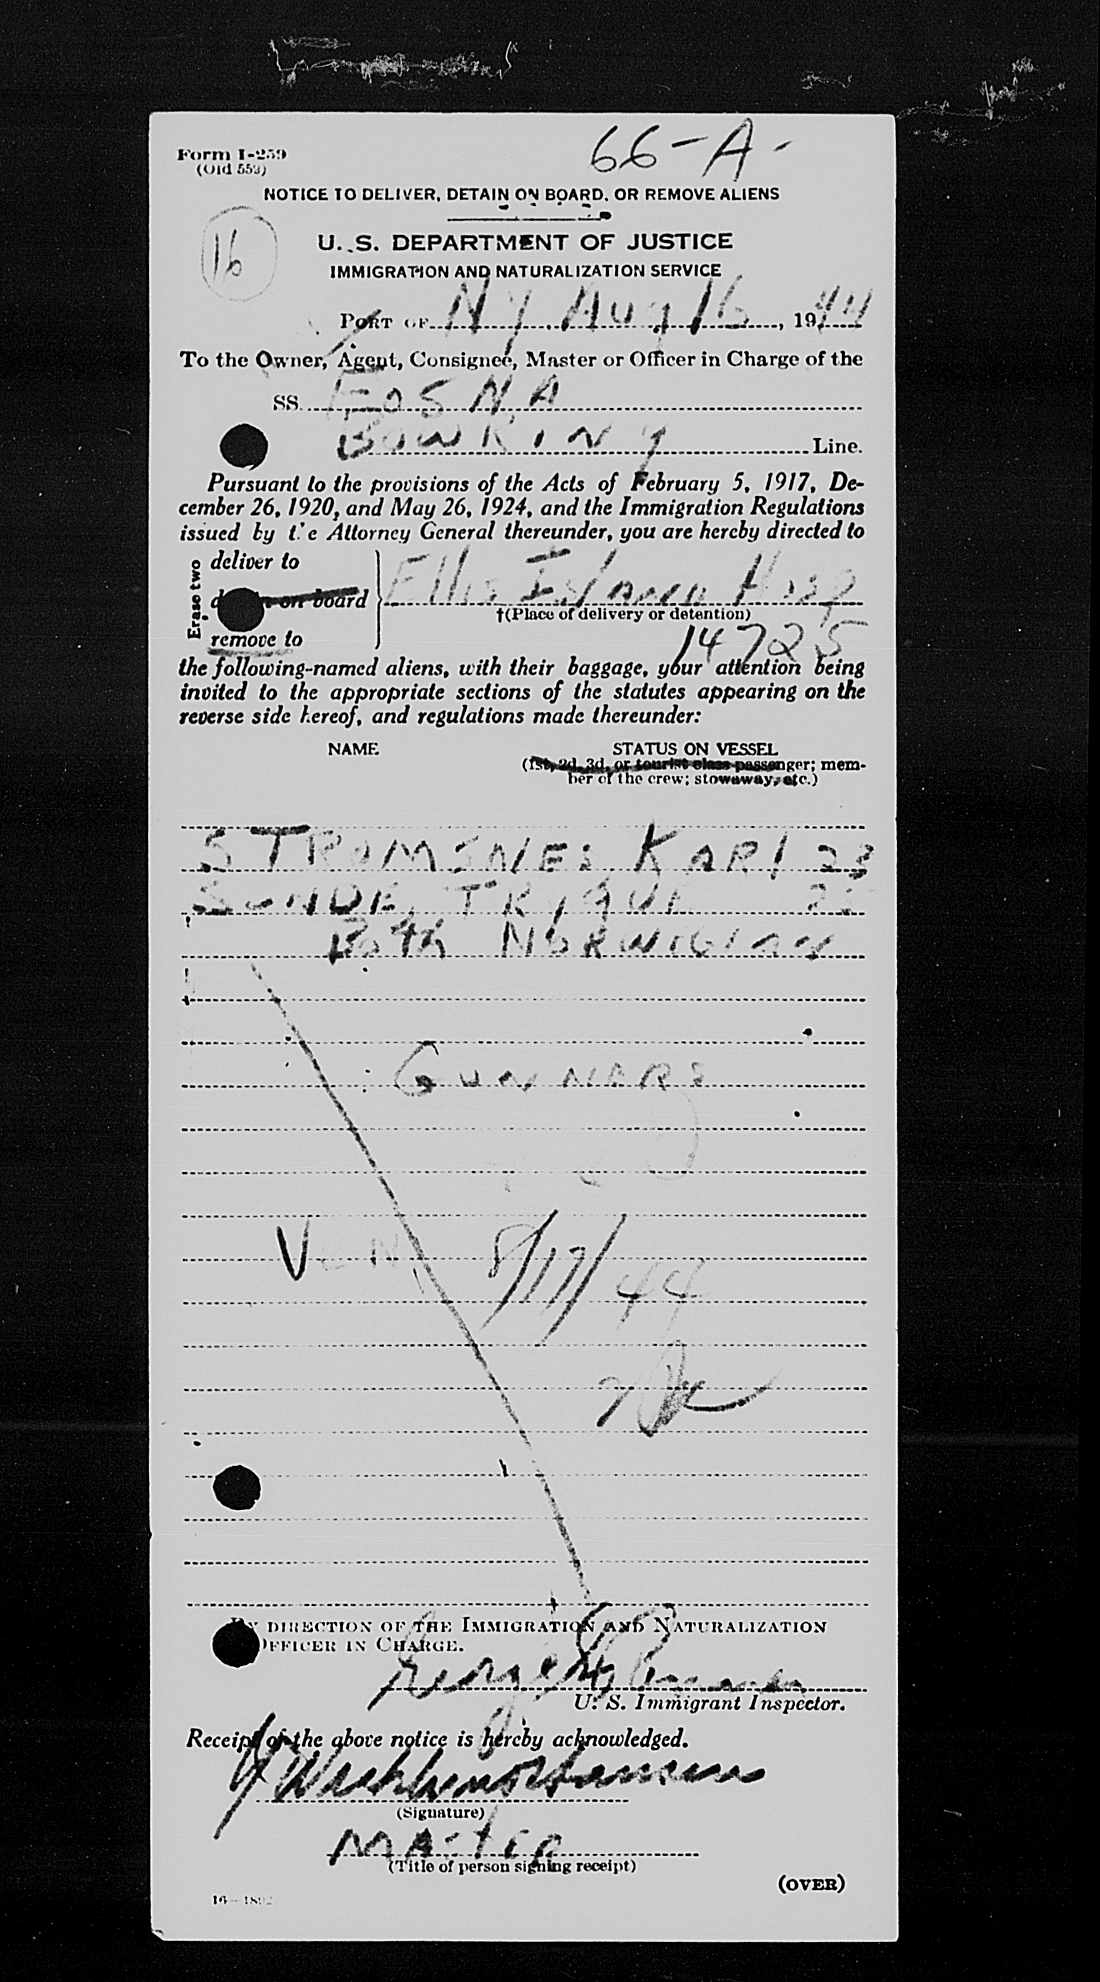 66-A-
Form I-259
(Old 553)
NOTICE TO DELIVER, DETAIN ON BOARD, OR REMOVE ALIENS
16
U. S. DEPARTMENT OF JUSTICE
IMMIGRATION AND NATURALIZATION SERVICE
PORT OF NY Aug 16, 1944
To the Owner, Agent, Consignee, Master or Officer in Charge of the
SS. FOSNA
BOWRING Line.
Pursuant to the provisions of the Acts of February 5, 1917, De-
cember 26, 1920, and May 26, 1924, and the Immigration Regulations
issued by the Attorney General thereunder, you are hereby directed to
Erase two
deliver to
on board
remove to
Ellis Island Hosp
†(Place of delivery or detention)
14725
the following-named aliens, with their baggage, your attention being
invited to the appropriate sections of the statutes appearing on the
reverse side hereof, and regulations made thereunder:
NAME STATUS ON VESSEL
(1st, 2d, 3d, or tourist class passenger; mem-
ber of the crew; stowaway, etc.)
STROMSNES KARL 23
SUNDE, TRYGVE
Both NORWEGIAN
GUNNERS
8/17/44
BY DIRECTION OF THE IMMIGRATION AND NATURALIZATION
OFFICER IN CHARGE.
George
U. S. Immigrant Inspector.
Receipt of the above notice is hereby acknowledged.
(Signature)
MASTER
(Title of person signing receipt)
(OVER)